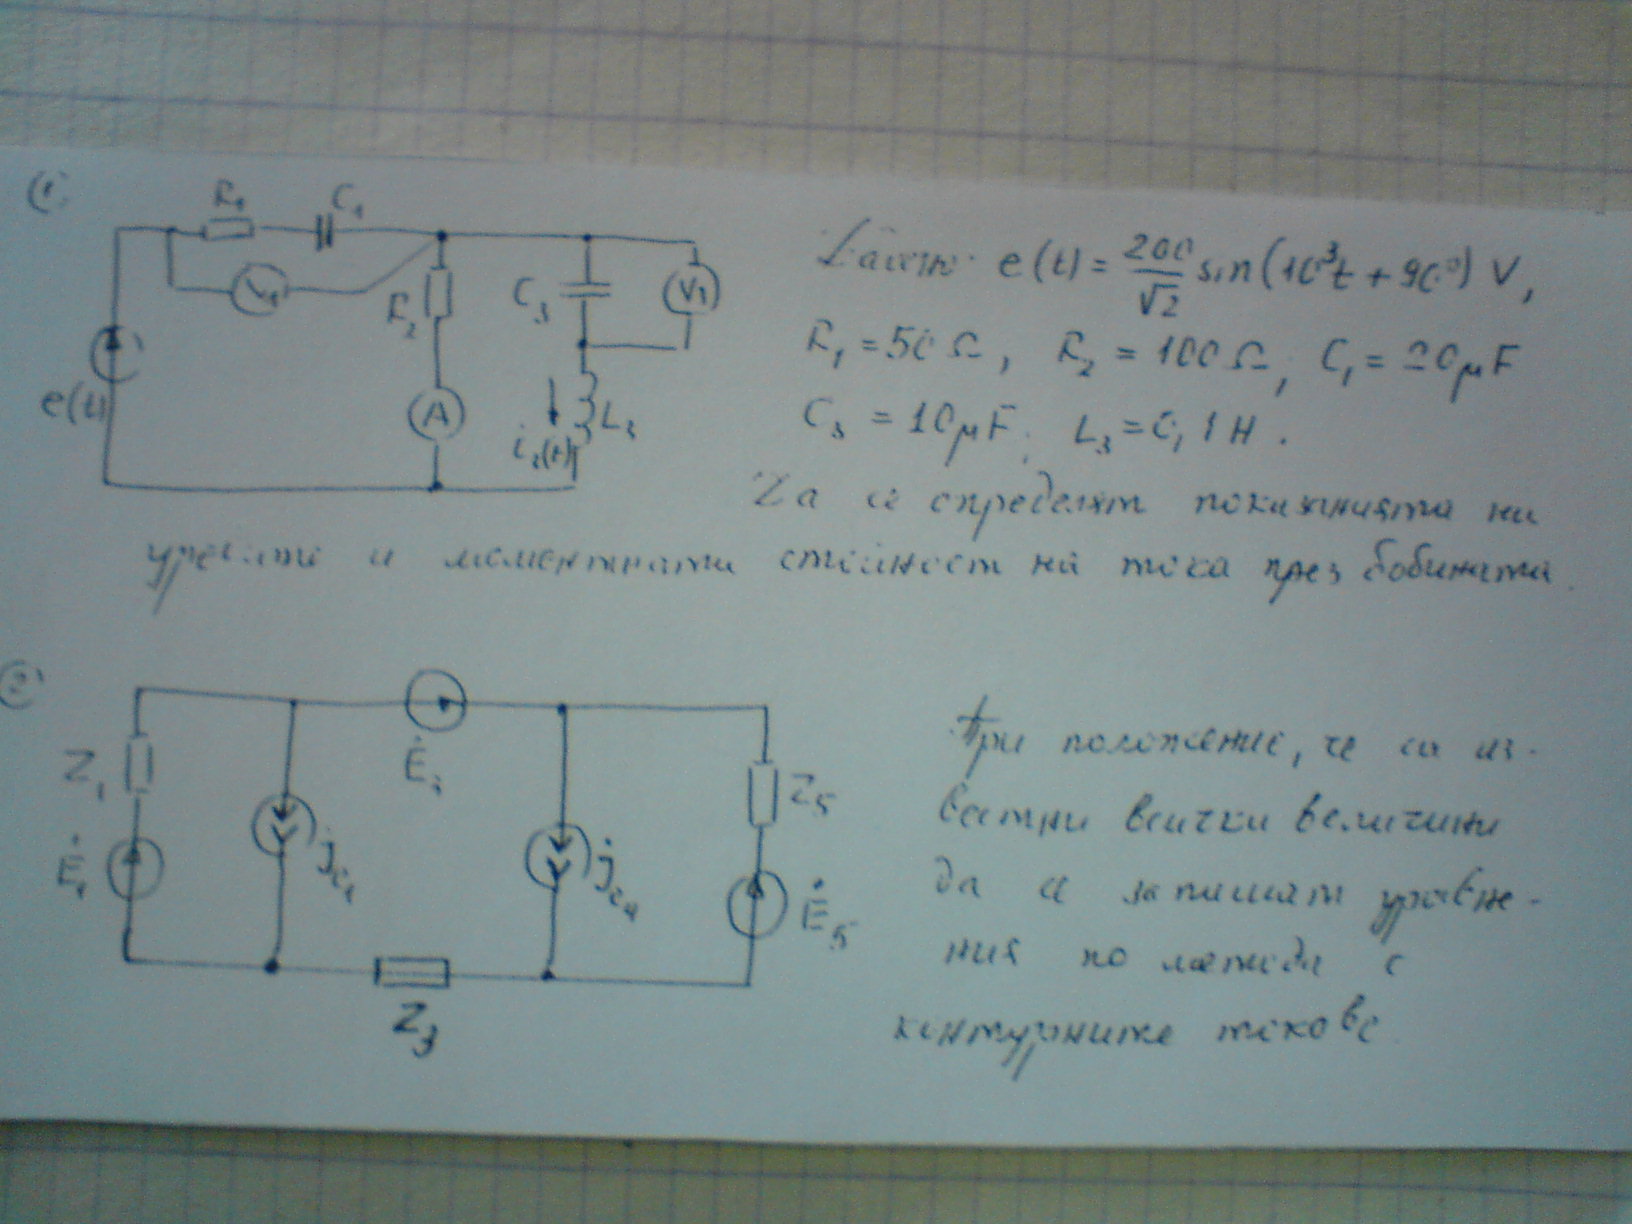 1)
R₁ C₁
V₁
R₂
C₃
V₃
A
L₃
e(t)
Дадено: e(t) = 200/√2 sin(10³t + 90°) V,
R₁ = 50 Ω, R₂ = 100 Ω, C₁ = 20 μF
C₃ = 10 μF, L₃ = 0,1 H.
Да се определят показанията на
уредите и моментната стойност на тока през бобината.
2)
Z₁
Ė₁
Z₅
Ė₅
Z₃
При положение, че са из-
вестни всички величини
да се запишат уравне-
ния по метода с
контурните токове